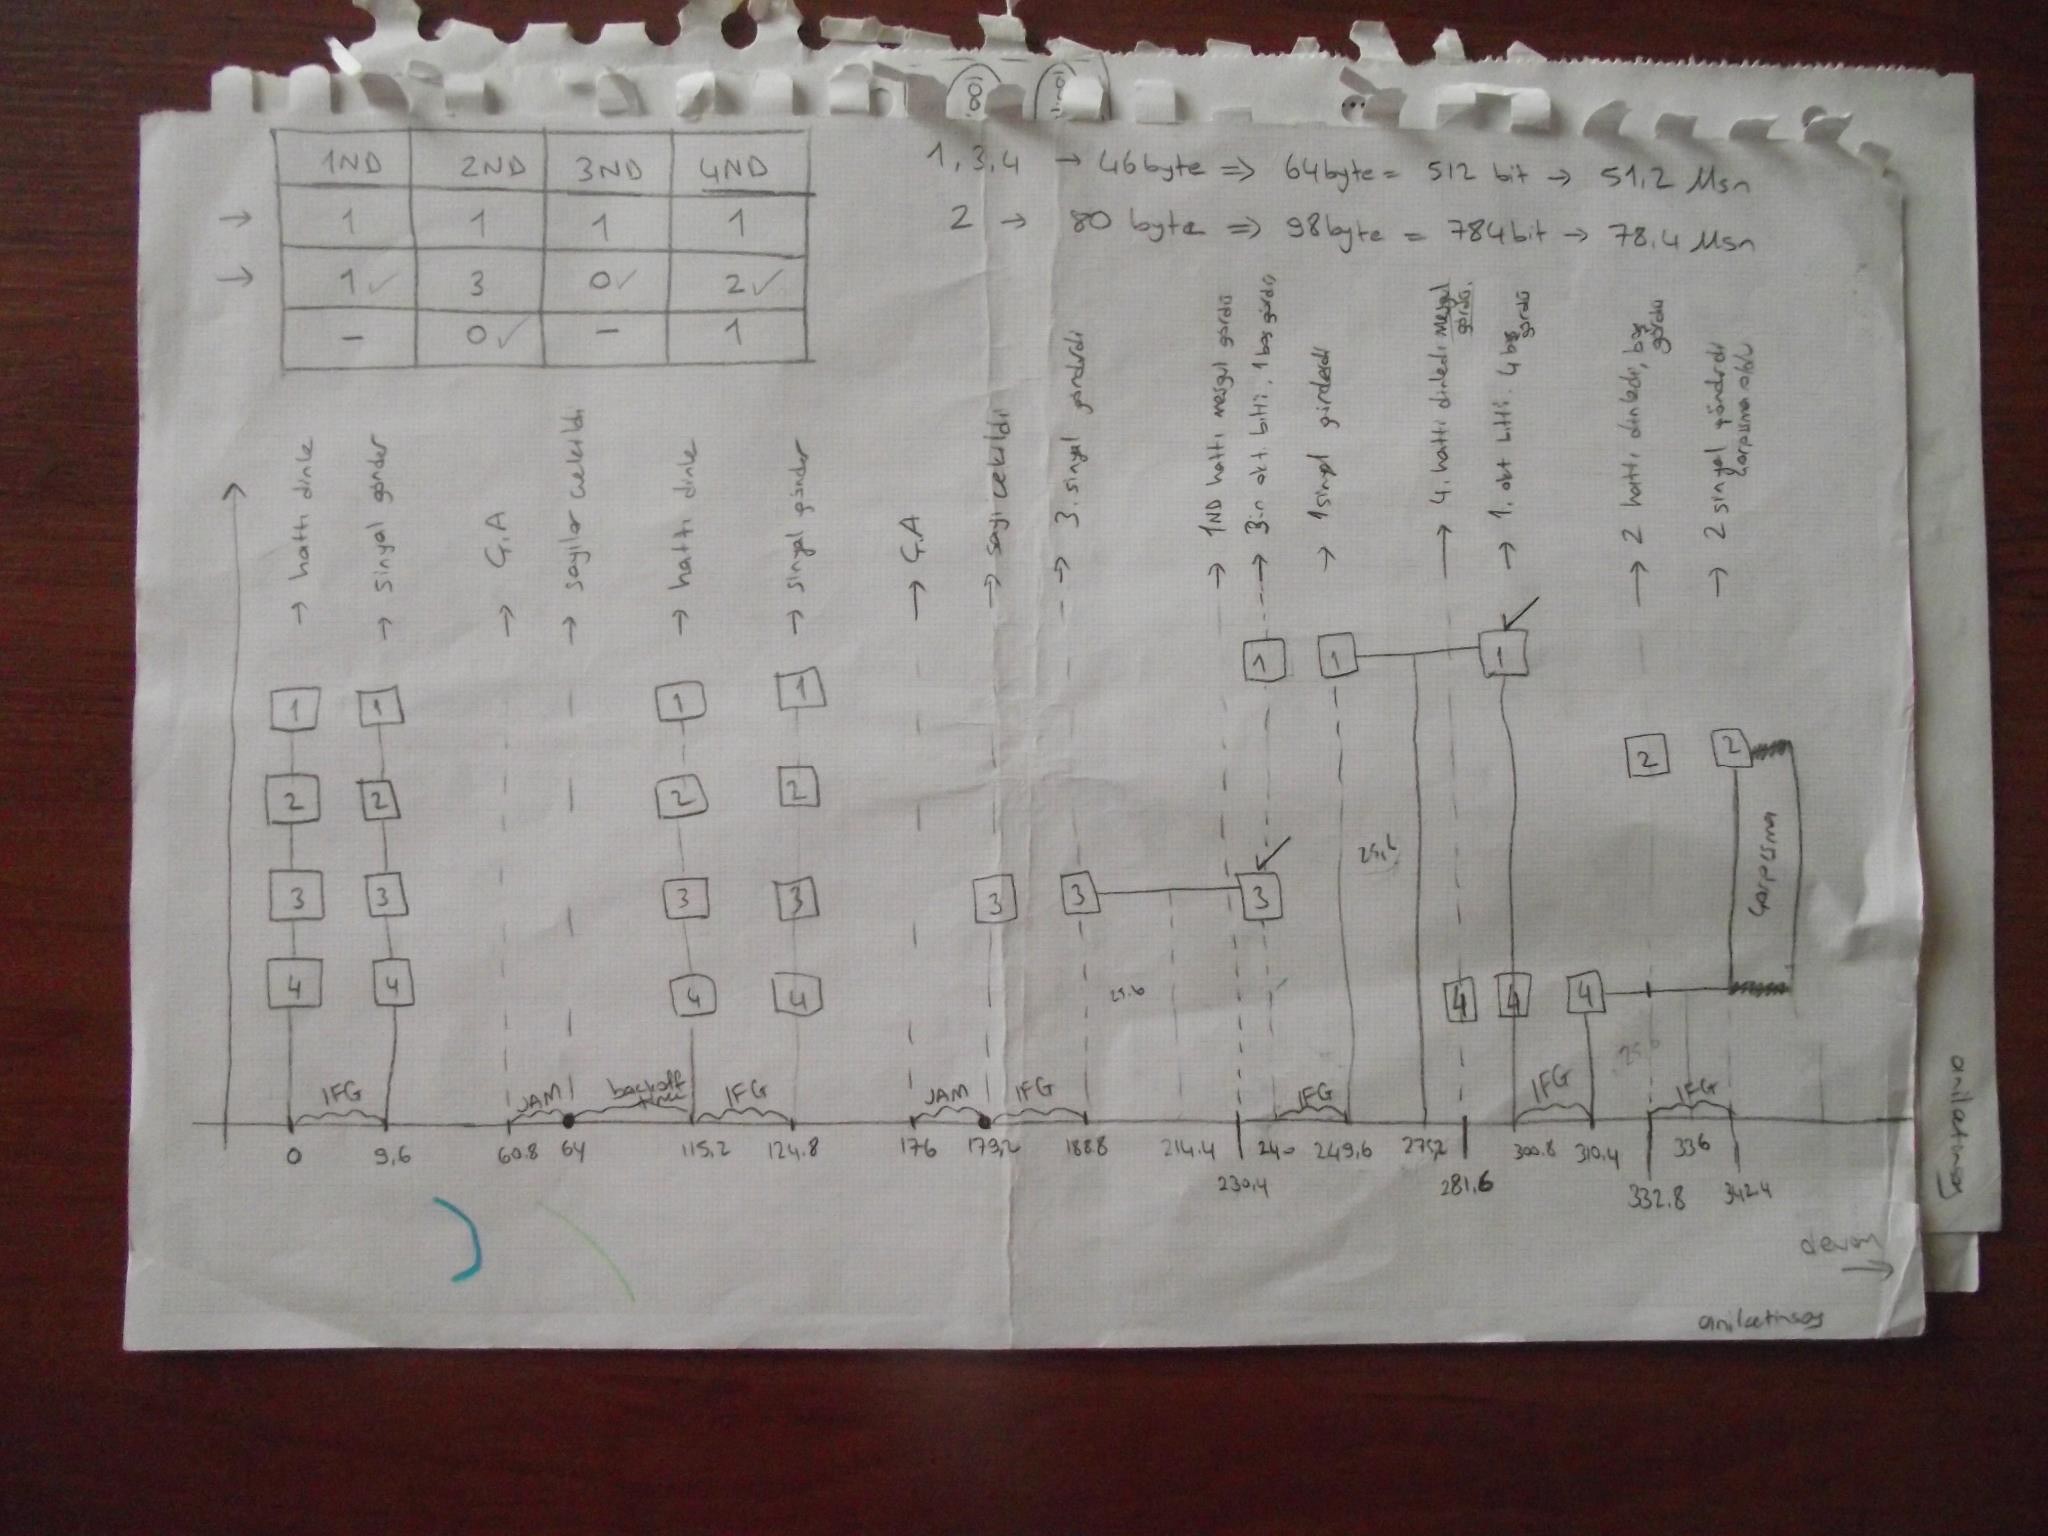 1ND 2ND 3ND 4ND
→ 1 1 1 1
→ 1✓ 3 0✓ 2✓
- 0✓ - 1
1,3,4 → 46byte => 64byte = 512 bit → 51,2 Msn
2 → 80 byte => 98byte = 784bit → 78,4 Msn
→ hattı dinle
→ sinyal gönder
→ Ç.A
→ sayılar çekildi
→ hattı dinle
→ sinyal gönder
→ Ç.A
→ sayı çekildi
→ 3. sinyal gönderdi
→ 1ND hattı meşgul gördü
→ 3.n akt. bitti. 1 boş gördü
→ 1 sinyal gönderdi
→ 4. hattı dinledi meşgul gördü.
→ 1. akt bitti. 4 boş gördü
→ 2 hattı dinledi, boş gördü
→ 2 sinyal gönderdi çarpışma oldu
1 1 1 1 1 1 1
2 2 2 2 2 2
3 3 3 3 3 3 3
4 4 4 4 4 4 4
25,6
25.6
25.6
Çarpışma
IFG JAM backoff time IFG JAM IFG IFG IFG IFG
0 9,6 60.8 64 115,2 124.8 176 179,2 188.8 214.4 230,4 240 249,6 275,2 281,6 300.8 310,4 332.8 336 342.4
devam →
anilcetinsoy
anilcetinsoy